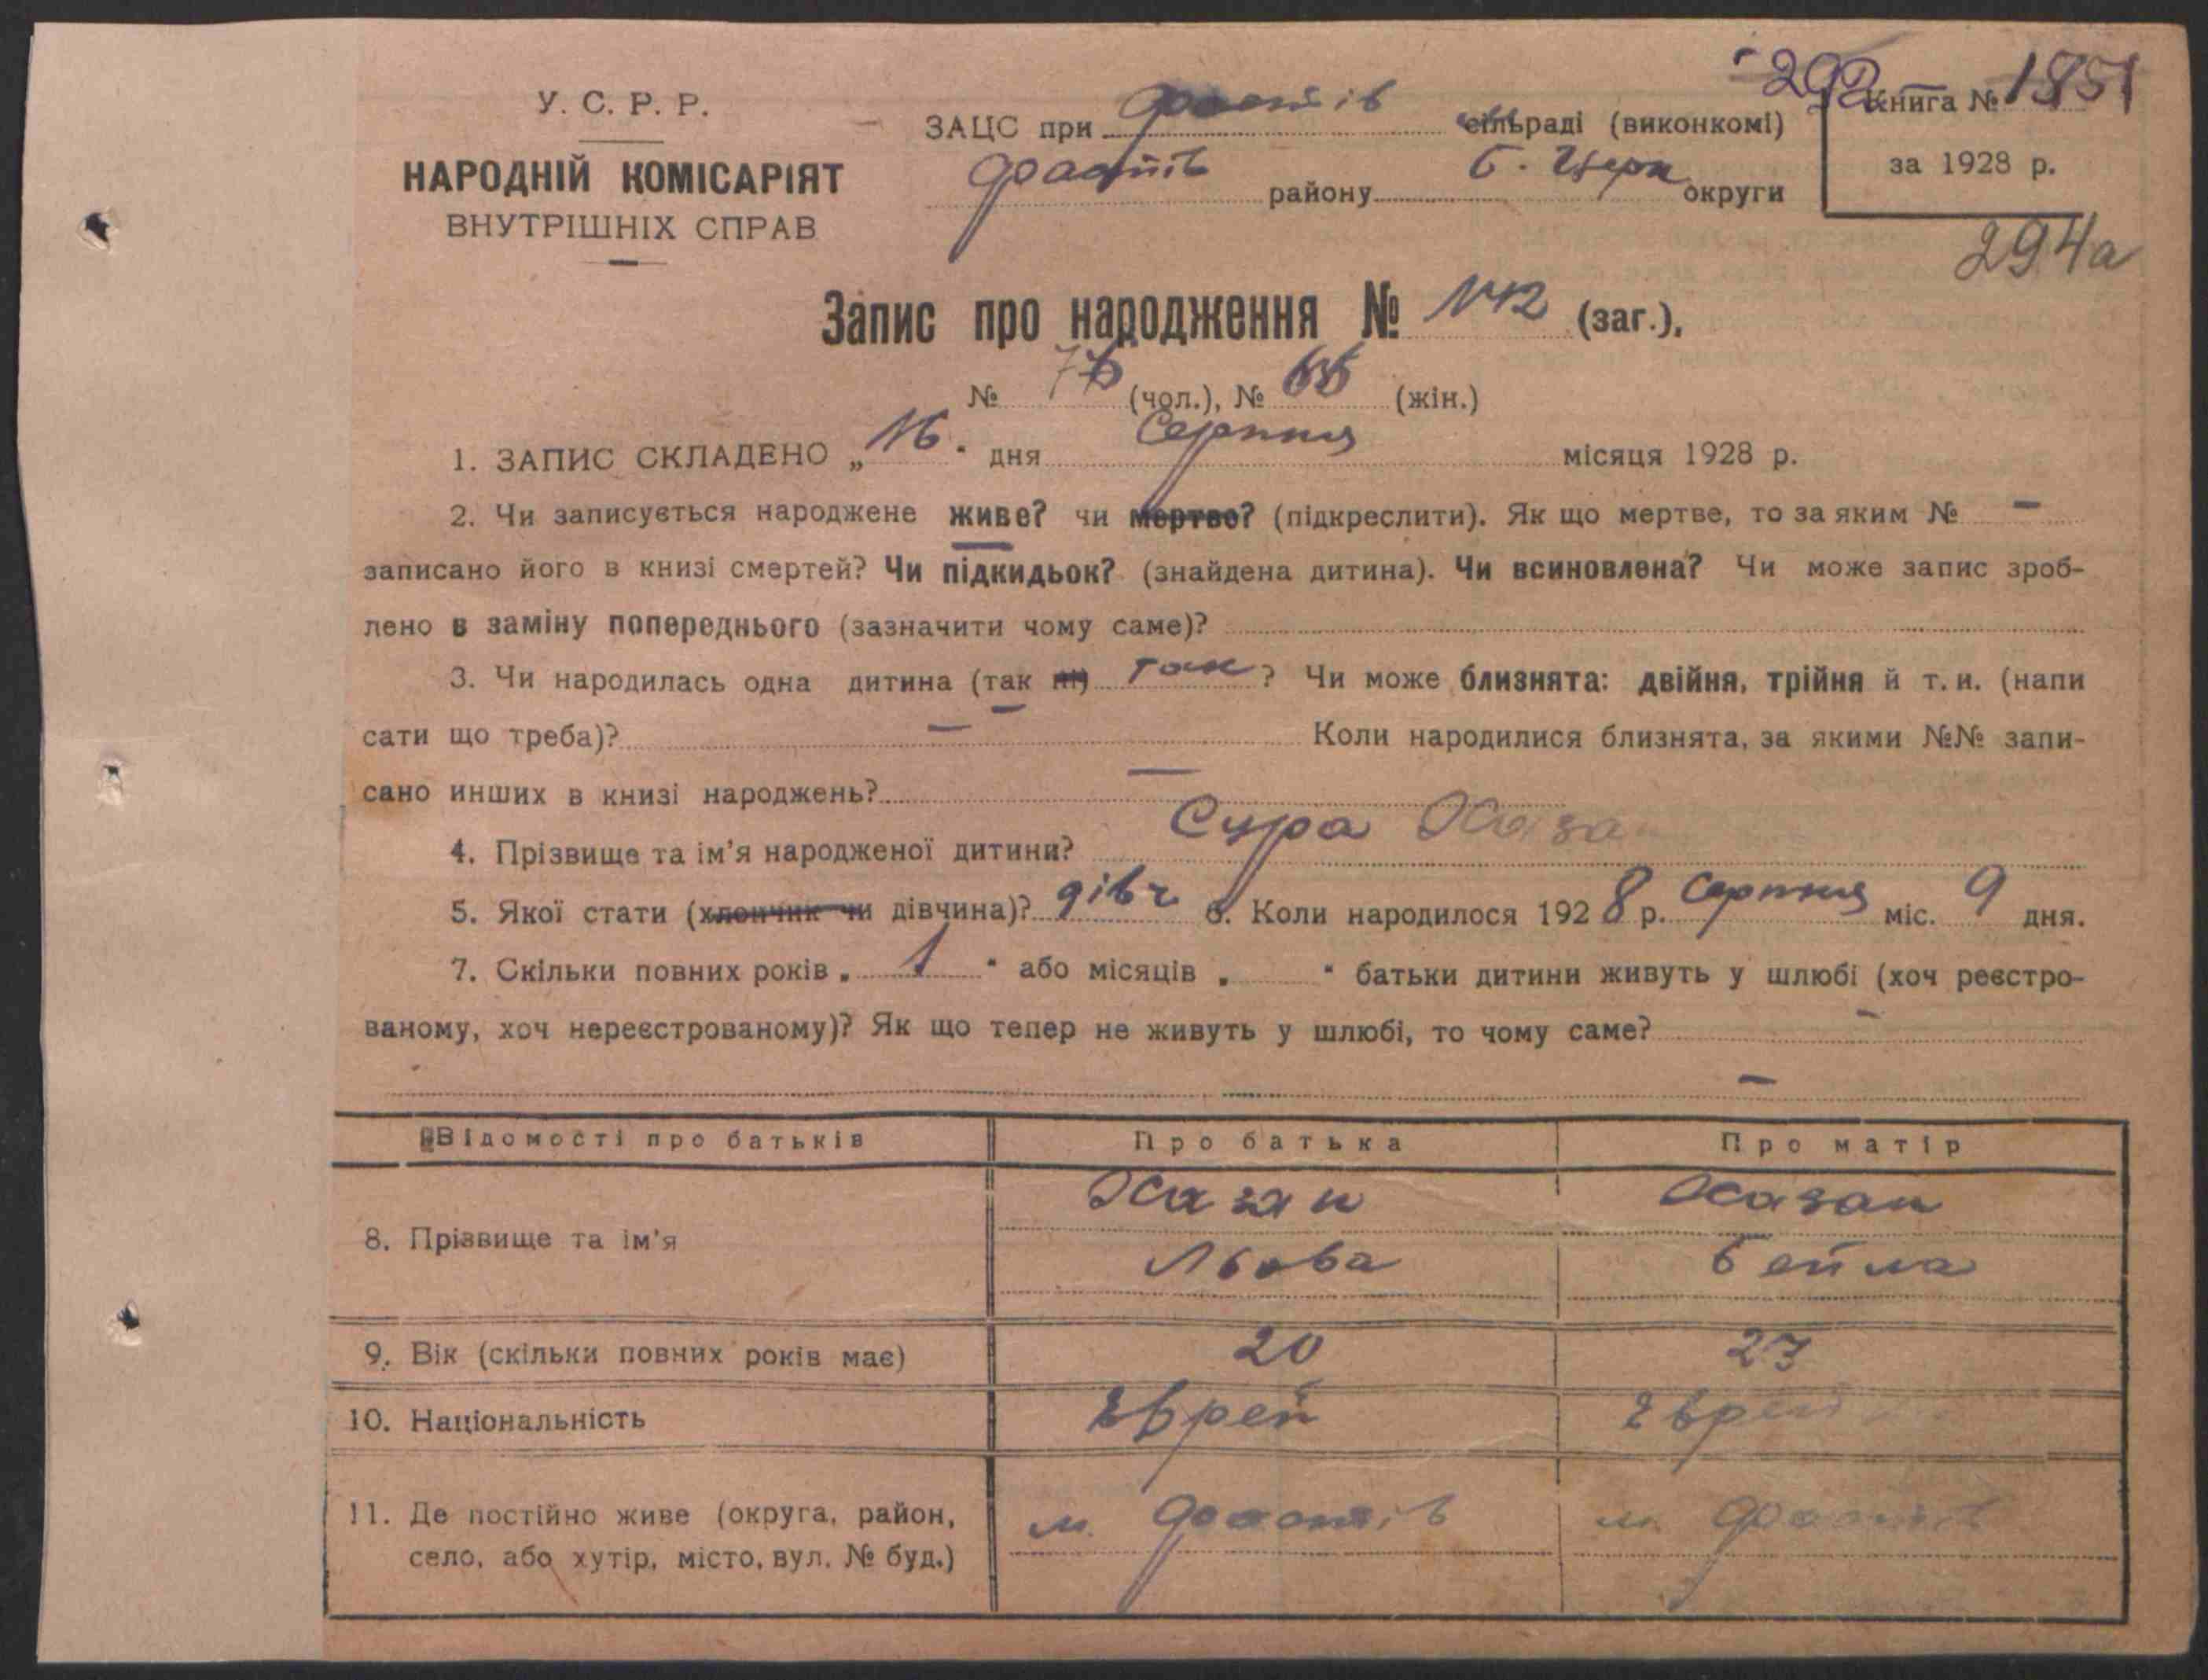 У. С. Р. Р.
НАРОДНІЙ КОМІСАРІЯТ
ВНУТРІШНІХ СПРАВ
ЗАЦС при Фастів сільраді (виконкомі)
Фастів району Б. Церк округи
Книга № 1851
за 1928 р.
294а
Запис про народження № 142 (заг.),
№ 76 (чол.), № 66 (жін.)
1. ЗАПИС СКЛАДЕНО „16" дня Серпня місяця 1928 р.
2. Чи записується народжене живе? чи мертве? (підкреслити). Як що мертве, то за яким № —
записано його в книзі смертей? Чи підкидьок? (знайдена дитина). Чи всиновлена? Чи може запис зроб-
лено в заміну попереднього (зазначити чому саме)?
3. Чи народилась одна дитина (так ні) так? Чи може близнята: двійня, трійня й т. и. (напи
сати що треба)? — Коли народилися близнята, за якими №№ запи-
сано инших в книзі народжень? —
4. Прізвище та ім'я народженої дитини? Сура Хазан
5. Якої стати (хлопчик чи дівчина)? дівч 6. Коли народилося 1928 р. Серпня міс. 9 дня.
7. Скільки повних років „1" або місяців „ " батьки дитини живуть у шлюбі (хоч реєстро-
ваному, хоч нереєстрованому)? Як що тепер не живуть у шлюбі, то чому саме? —
—
Відомості про батьків Про батька Про матір
8. Прізвище та ім'я Хазан Хазан
Льова Бейла
9. Вік (скільки повних років має) 20 23
10. Національність Єврей Єврей
11. Де постійно живе (округа, район,
село, або хутір, місто, вул. № буд.) м. Фастів м. Фастів